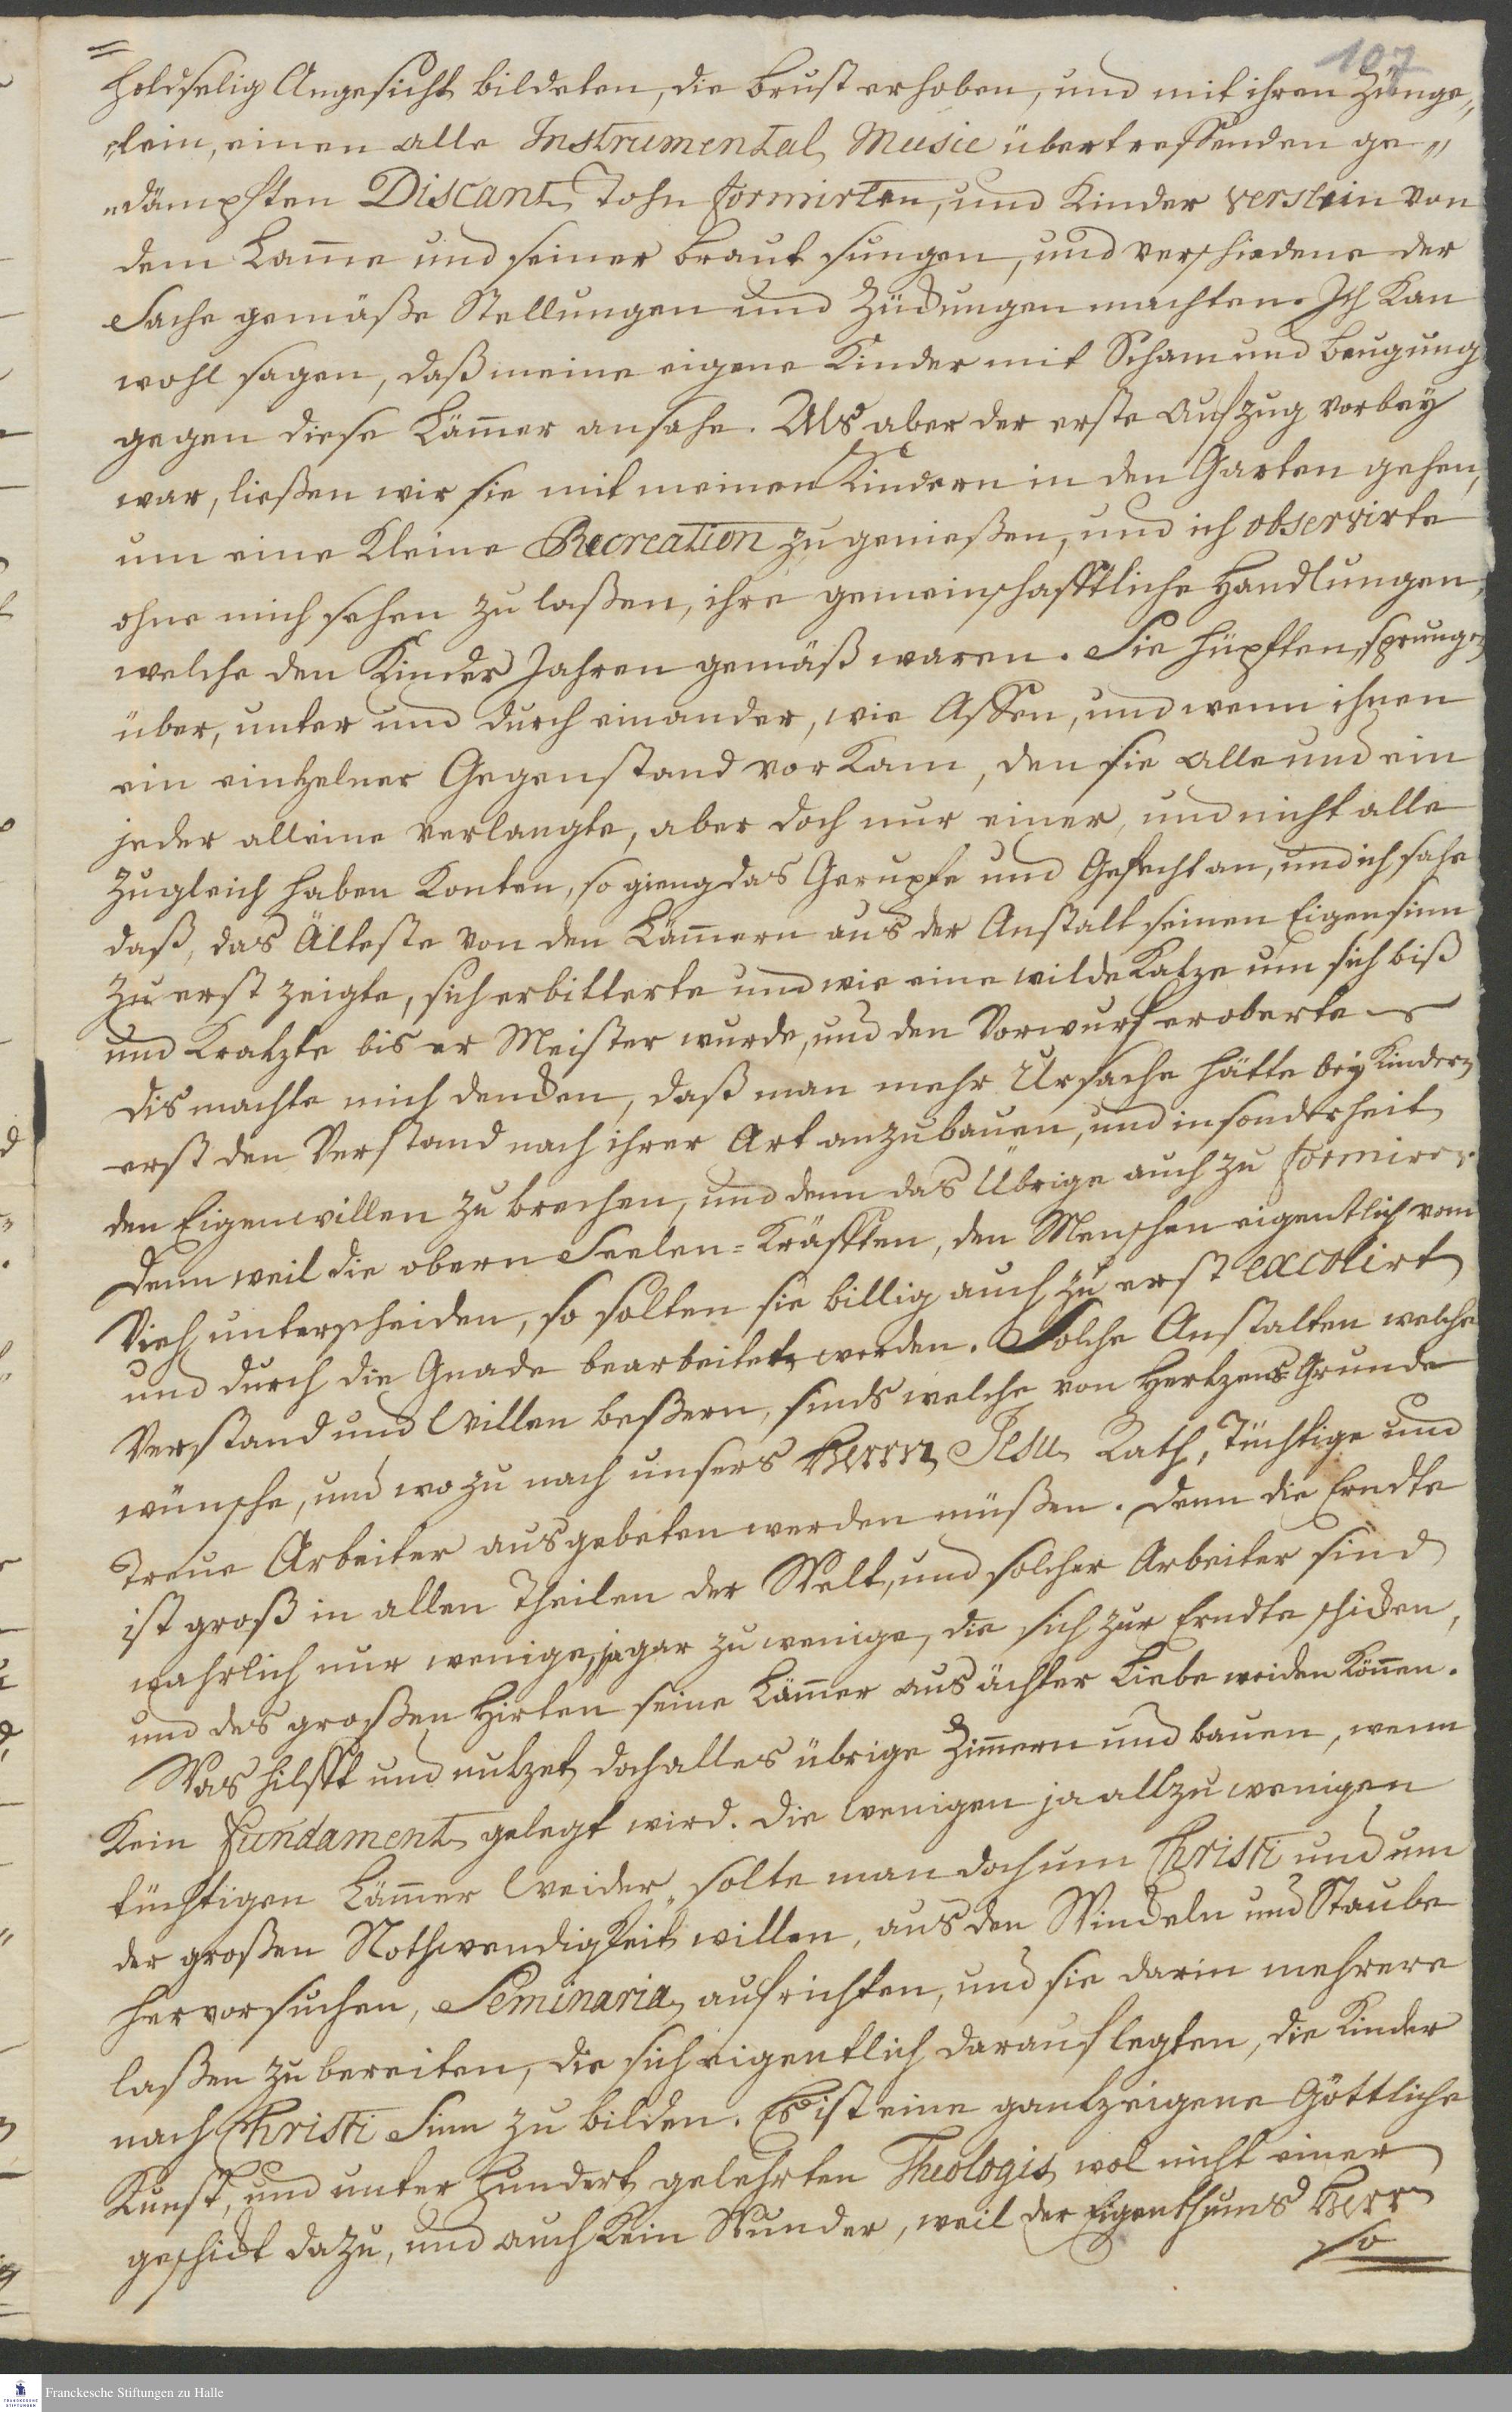 107
=
holdselig Angesicht bildeten, die Brust erhoben, und mit ihren Zünge„
„lein, einen alle Instrumental Music übertreffenden ge„
„dämpften Discant Tohn formirten, und Kinder verslein von
dem Lam̄e und seiner Braut sungen, und verschiedene der
Sache gemäße Stellungen und Zückungen machten. Ich kan
wohl sagen, daß meine eigene Kinder mit Scham und Beugung
gegen diese Läm̄er ansahe. Als aber der erste Aufzug vorbey
war, ließen wir sie mit meinen Kindern in den Garten gehen,
um eine kleine Recreation zu genießen, und ich observirte
ohne mich sehen zu laßen, ihre gemeinschafftliche Handlungen,
welche den Kinder Jahren gemäß waren. Sie hüpften, sprungen
über, unter und durch einander, wie Affen, und wenn ihnen
ein eintzelner Gegenstand vorkam, den sie alle und ein
jeder alleine verlangte, aber doch nur einer, und nicht alle
zugleich haben konten, so gieng das Gerupfe und Gefecht an, und ich sahe
daß, das Älteste von den Läm̄ern aus der Anstalt seinen Eigensinn
zu erst zeigte, sich erbitterte und wie eine wilde Katze um sich biß
und kratzte bis er Meister wurde, und den Vorwurf eroberte
dis machte mich dencken, daß man mehr Ursache hätte bey Kindern
erst den Verstand nach ihrer Art anzubauen, und insonderheit
den Eigenwillen zu brechen, und denn das Übrige auch zu formiren.
Denn weil die obern Seelen=Kräfften, den Menschen eigentlich vom
Vieh unterscheiden, so solten sie billig auch zu erst excolirt
und durch die Gnade bearbeitet werden. Solche Anstalten welche
Verstand und Willen beßern, sinds welche von Hertzens Grunde
wünsche, und wozu nach unsers Herrn Jesu Rath, tüchtige und
treue Arbeiter ausgebeten werden müßen. Denn die Erndte
ist groß in allen Theilen der Welt, und solcher Arbeiter sind
wahrlich nur wenige, ja gar zu wenige, die sich zur Erndte schicken,
und des großen Hirten seine Läm̄er aus ächter Liebe weiden kön̄en.
Was hilfft und nutzet doch alles übrige Zim̄ern und bauen, wenn
kein Fundament gelegt wird. Die wenigen ja allzu wenigen
tüchtigen Läm̄er Weider, solte man doch um Christi und um
der großen Nothwendigkeit willen, aus den Winckeln und Staube
hervorsuchen, Seminaria aufrichten, und sie darin mehrere
laßen zubereiten, die sich eigentlich darauf legten, die Kinder
nach Christi Sinn zu bilden. Es ist eine gantz eigene Göttliche
Kunst, und unter Hundert gelehrten Theologis wol nicht einer
geschickt dazu, und auch kein Wunder, weil der Eigenthums Herr
so
Franckesche Stiftungen zu Halle